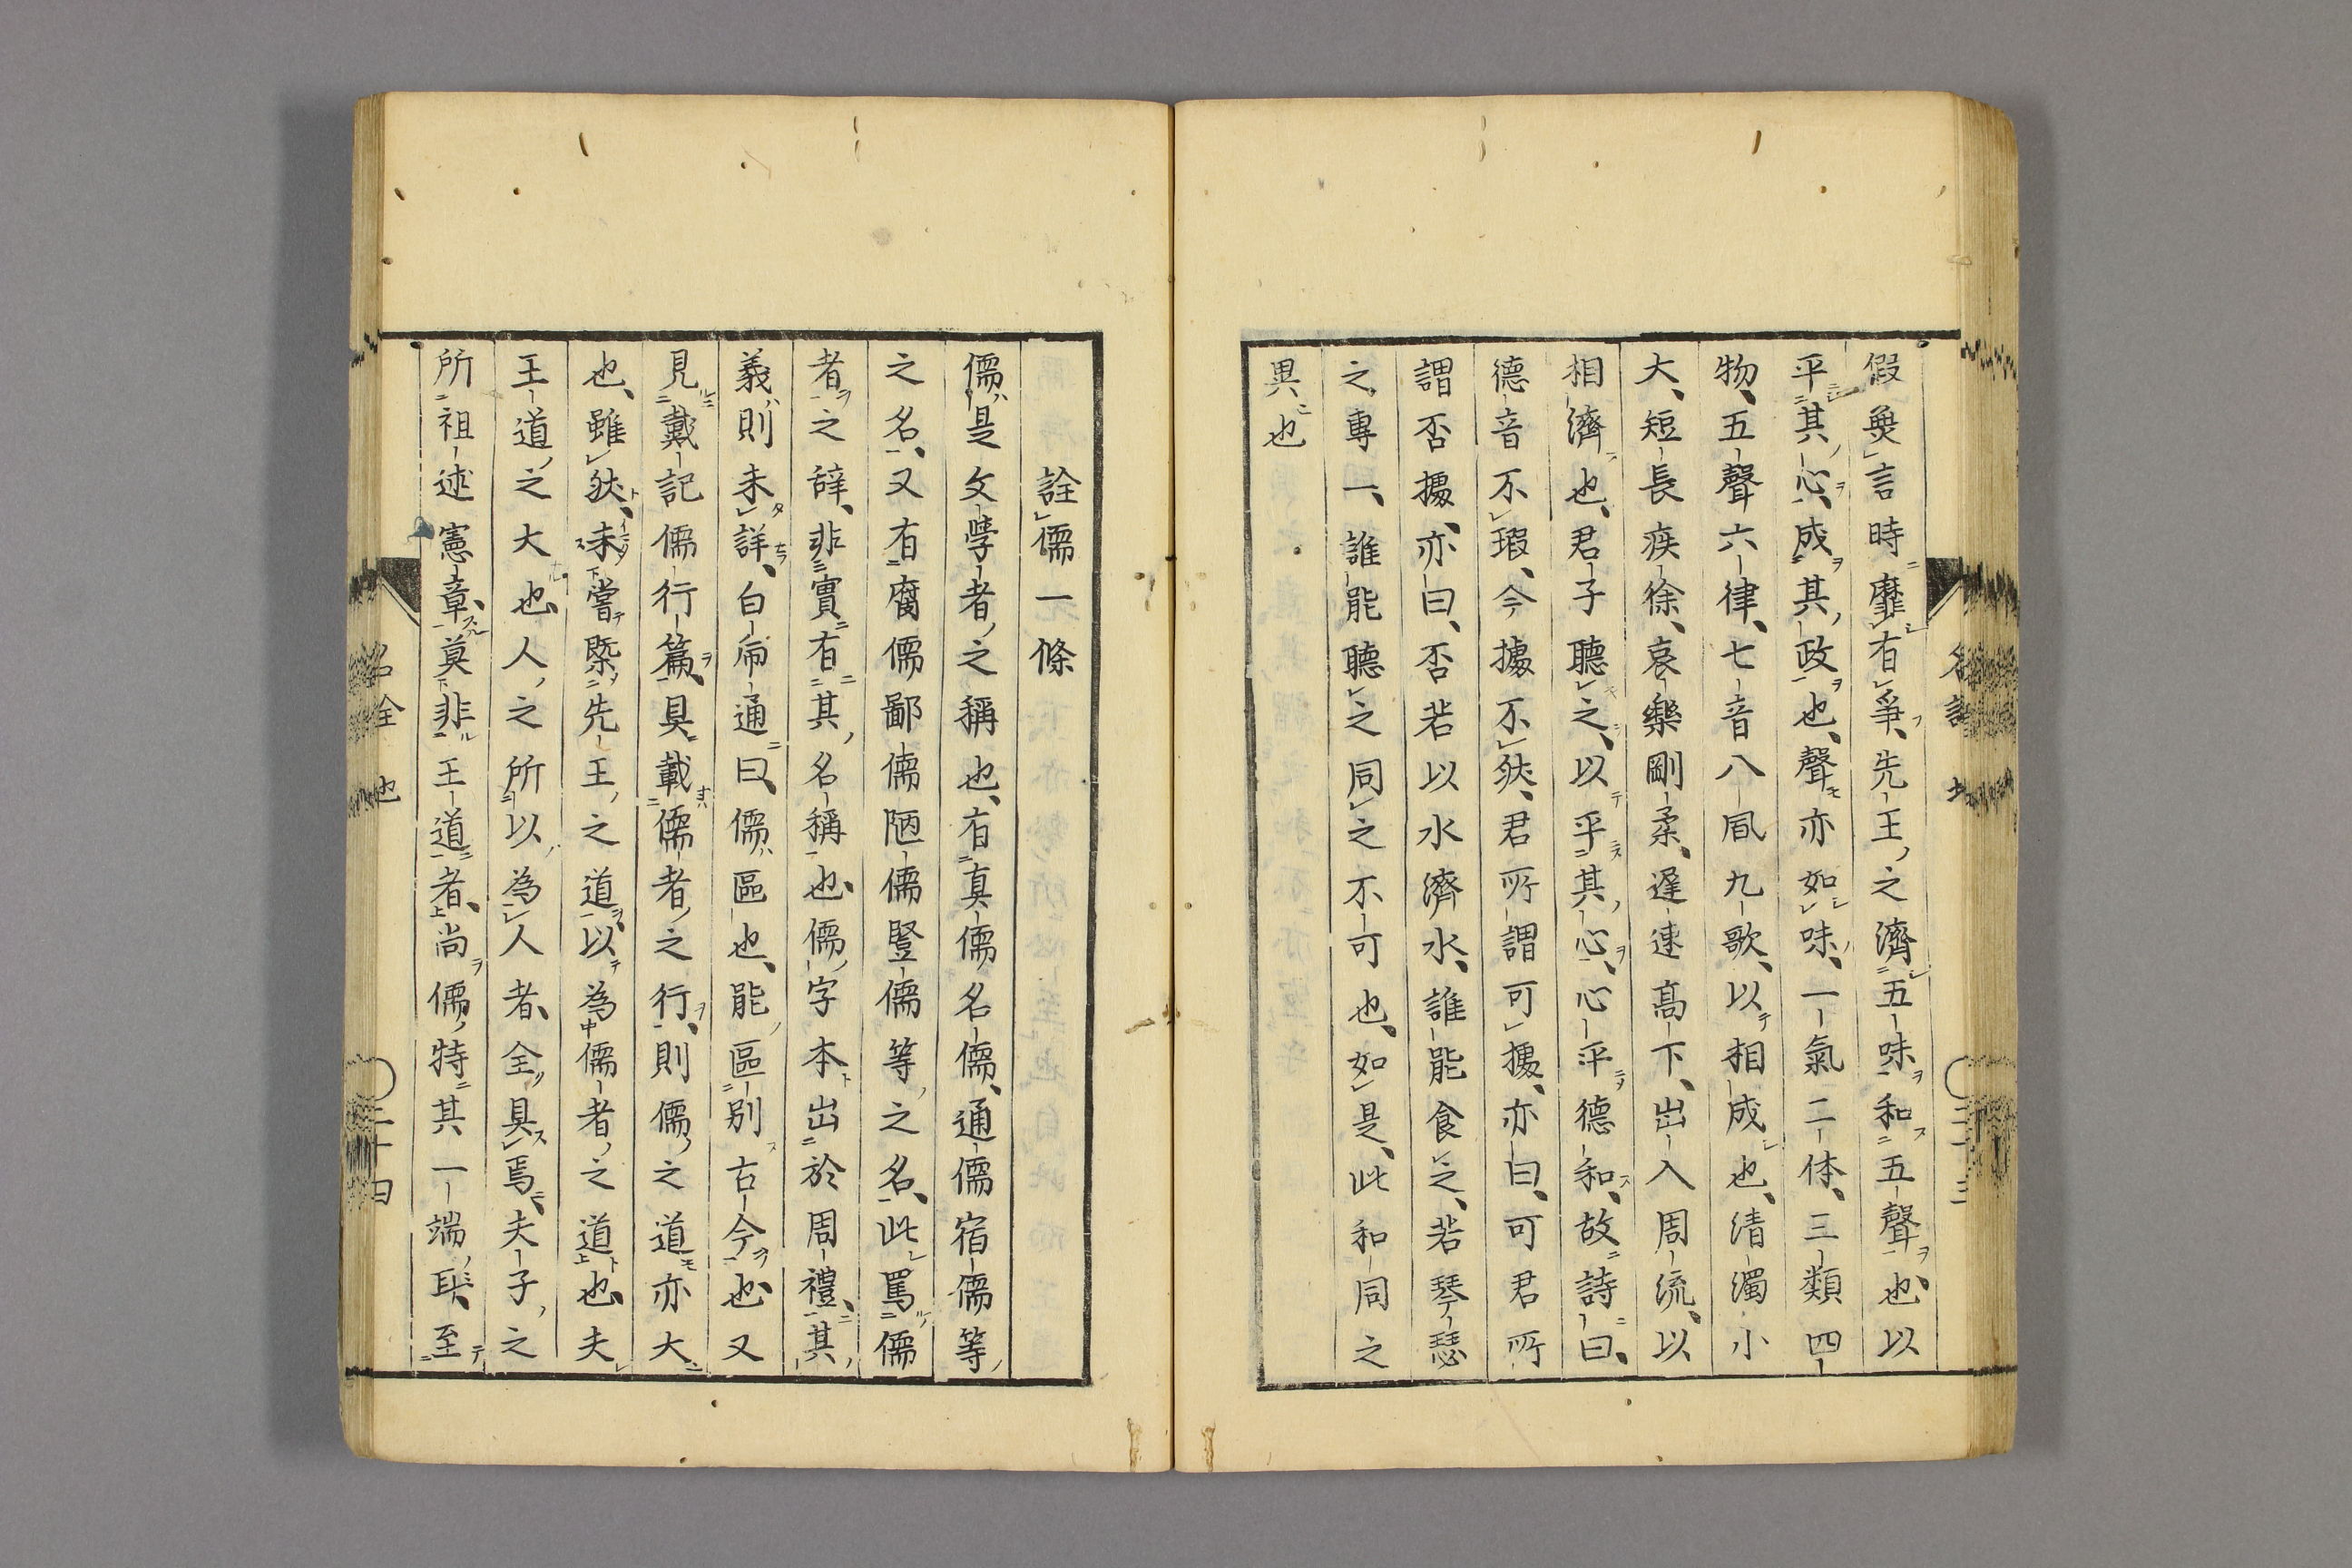 假無言時靡有爭先王之濟五味和五聲也以
平其心成其政也聲亦如味一氣二体三類四
物五聲六律七音八風九歌以相成也清濁小
大短長疾徐哀樂剛柔遲速高下出入周流以
相濟也君子聽之以平其心心平德和故詩曰
德音不瑕今據不然君所謂可據亦曰可君所
謂否據亦曰否若以水濟水誰能食之若琴瑟
之專一誰能聽之同之不可也如是此和同之
異也
詮儒一條
儒是文學者之稱也有真儒名儒通儒宿儒等
之名又有腐儒鄙儒陋儒豎儒等之名此罵儒
者之辞非實有其名稱也儒字本出於周禮其
義則未詳白虎通曰儒區也能區別古今也又
見戴記儒行篇具載儒者之行則儒之道亦大
也雖然未嘗槩先王之道以為儒者之道也夫
王道之大也人之所以為人者全具焉夫子之
所祖述憲章莫非王道者尚儒特其一端耳至
名詮 也
二十四